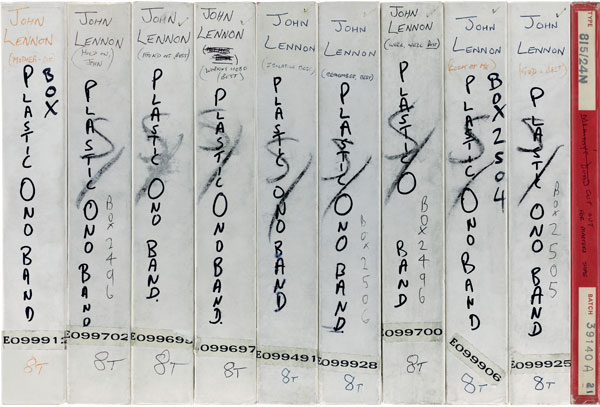 JOHN
LENNON
(MOTHER-
BOX
PLASTIC ONO BAND
E09991
8T
JOHN
LENNON
(HOLD ON
JOHN
PLASTIC ONO BAND
BOX 2496
E099702
8T
JOHN
LENNON
PLASTIC ONO BAND.
E099698
8T
JOHN
LENNON
(WORKING HERO
(BEST)
PLASTIC ONO BAND.
E099697
8T
JOHN
LENNON
(ISOLATION BEST)
PLASTIC ONO BAND
E099491
8T
JOHN
LENNON
(REMEMBER, BEST)
PLASTIC ONO BAND.
BOX 2506
E099928
8T
JOHN
LENNON
(WELL, WELL BEST)
PLASTIC ONO BAND
BOX 2496
E099700
8T
JOHN
LENNON
(LOOK AT ME)
PLASTIC ONO BAND
BOX 2504
E099906
8T
JOHN
LENNON
BEST)
PLASTIC ONO BAND
BOX 2505
E099925
8T
TYPE
8/5/24N
BATCH
39140A
21